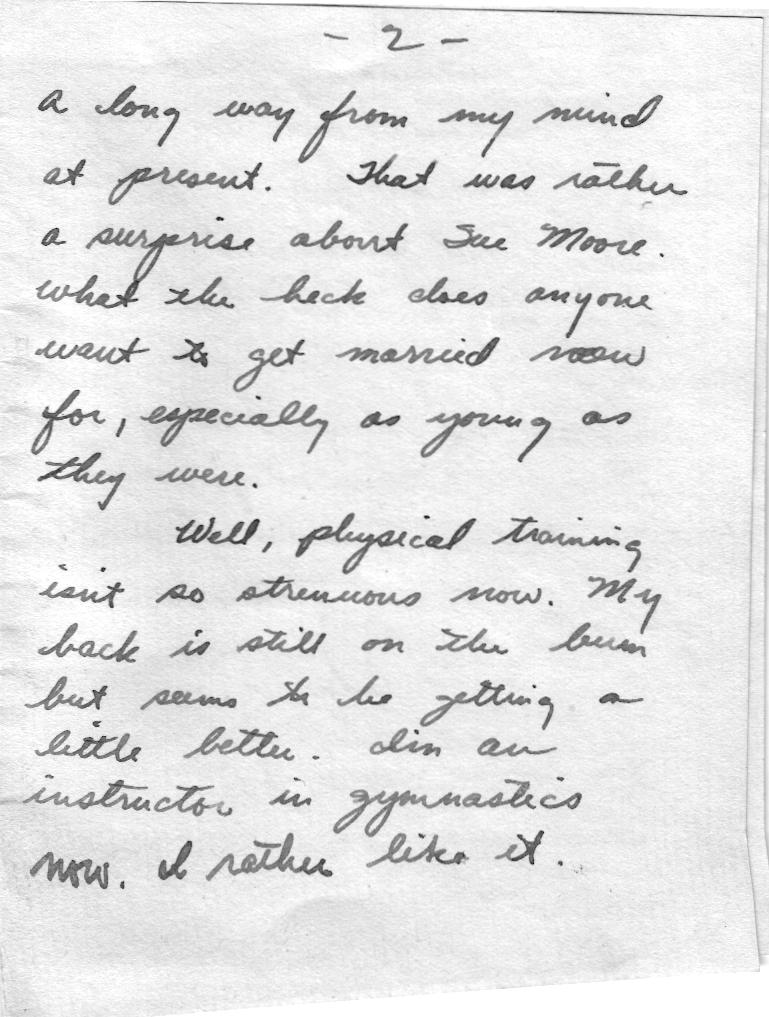 - 2 -
a long way from my mind
at present. That was rather
a surprise about Sue Moore.
what the heck does anyone
want to get married now
for, especially as young as
they were.
Well, physical training
isn't so strenuous now. My
back is still on the bum
but seems to be getting a
little better. I'm an
instructor in gymnastics
now. I rather like it.